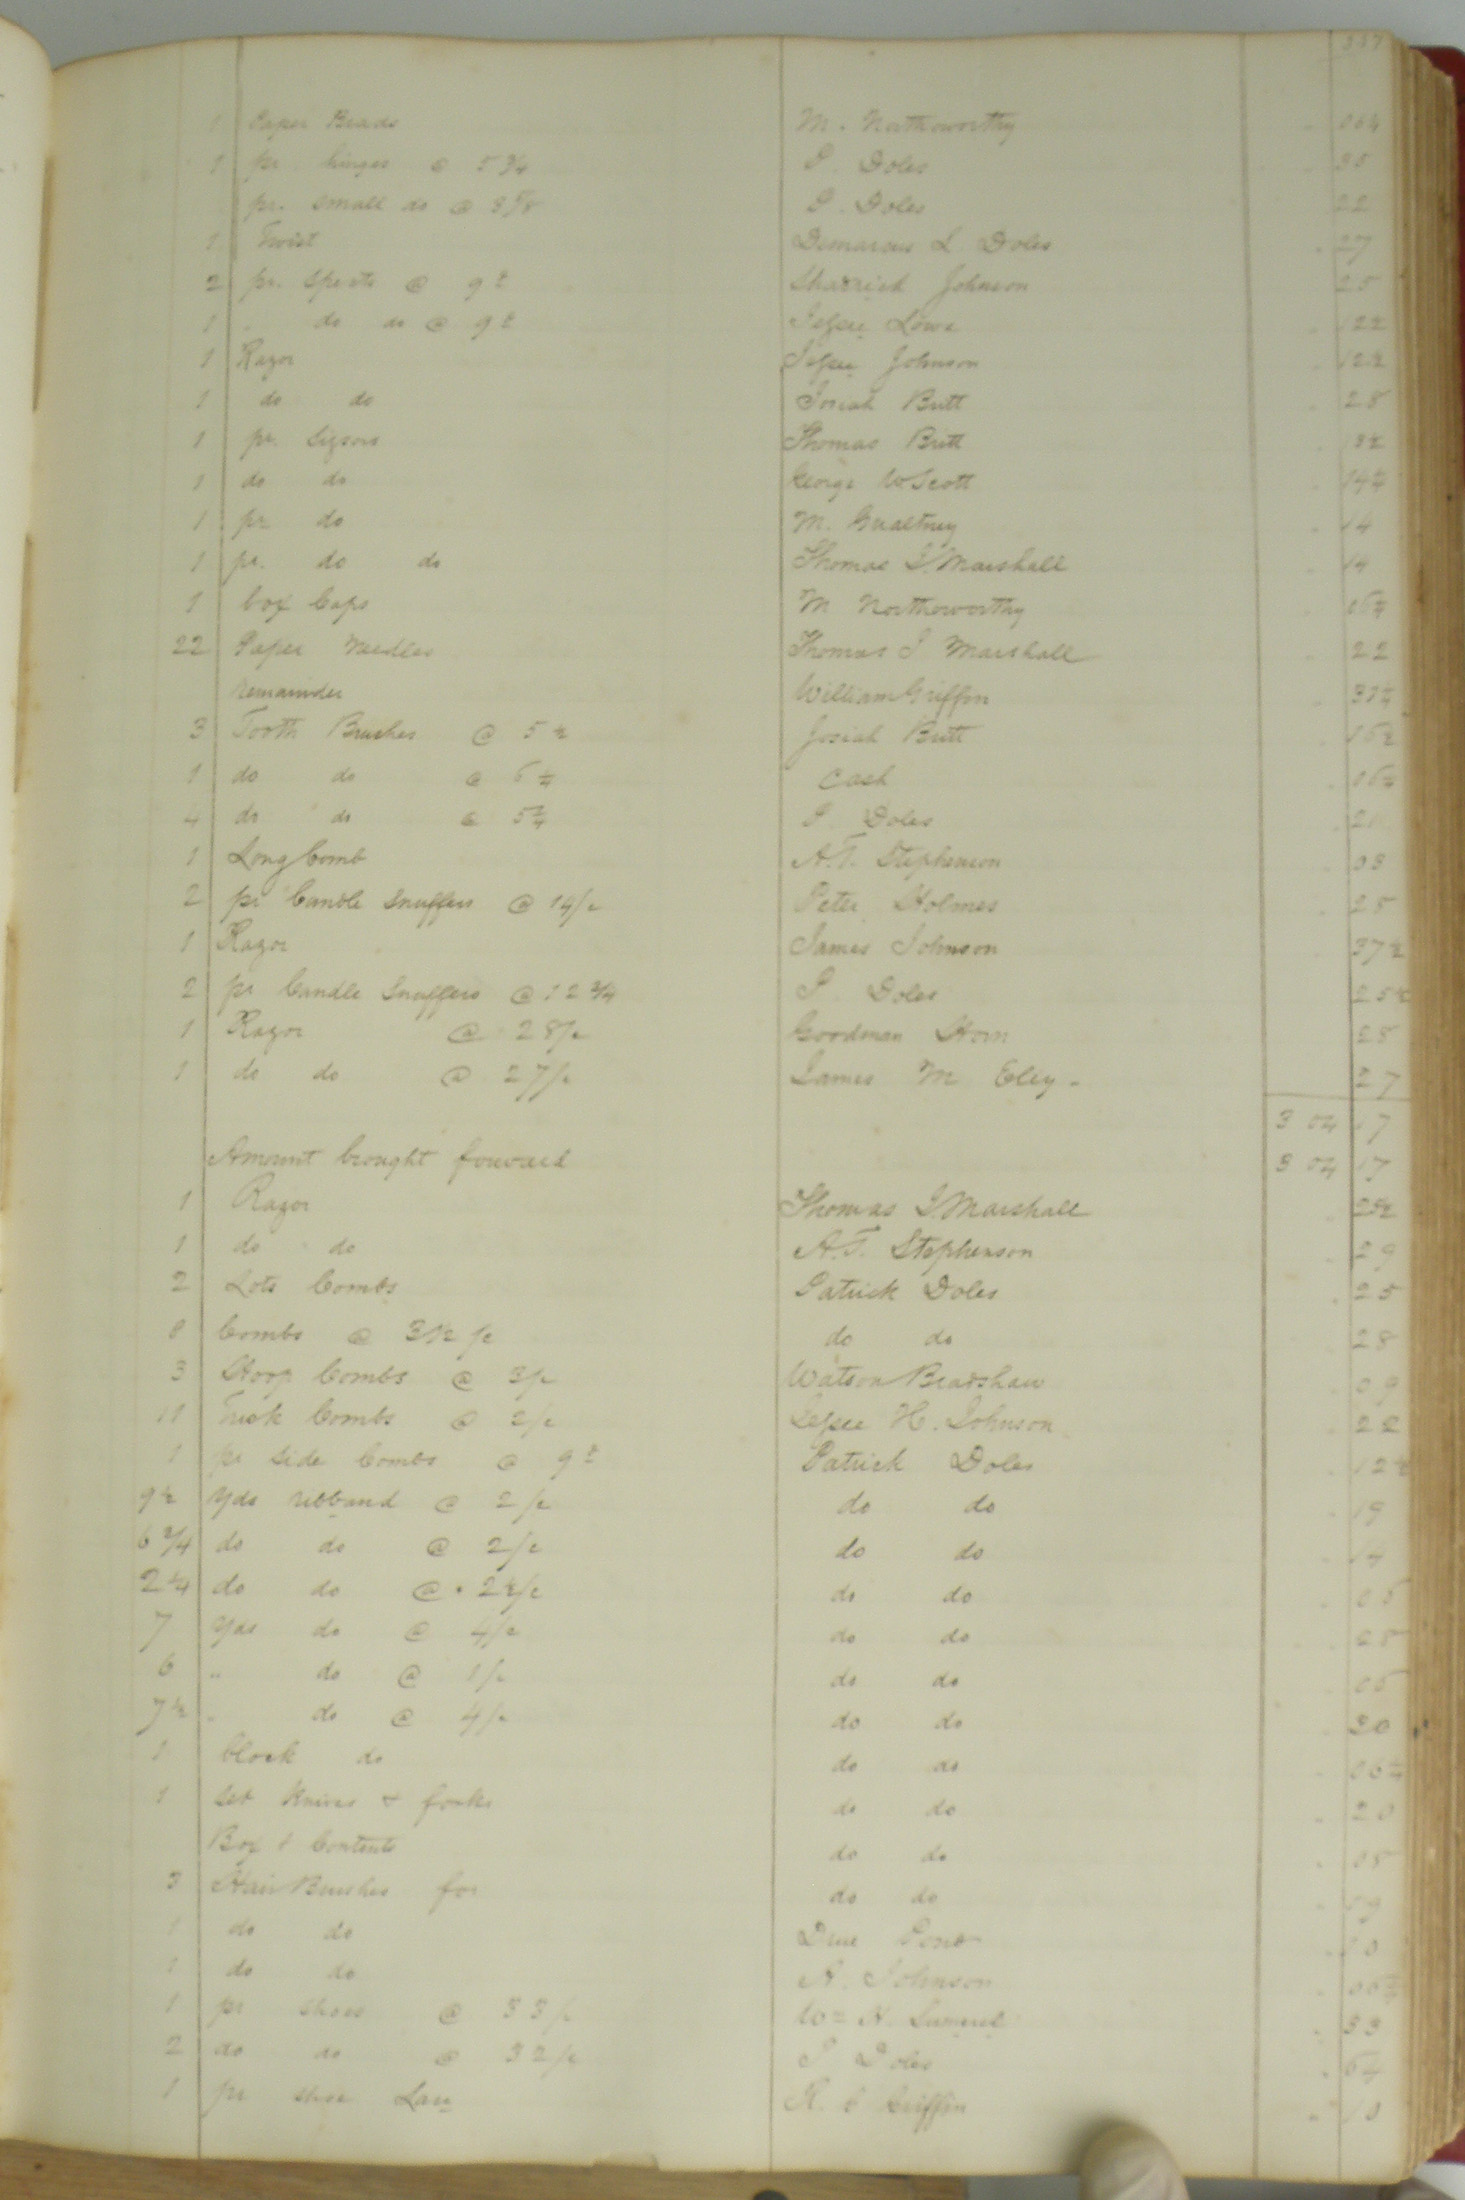 337
1 Paper Beads M. Northworthy 06¼
1 pr. hinges @ 5¾ P. Doles
pr. small do @ 3⅝ P. Doles 22
1 Twist L. Doles 27
2 pr. @ 9 Johnson 25
1 do do @ 9 Jesse Lowe 12½
1 Razor Jesse Johnson 12½
1 do do Josiah Britt 28
1 pr. Sizsors Thomas Britt
1 do do George W Scott 14¼
1 pr do M. Gwaltney 14
1 pr. do do Thomas J. Marshall 14
1 box Caps M Northworthy 06¼
22 Paper Needles Thomas J Marshall 22
remainder William Griffin
3 Tooth Brushes @ 5½ Josiah Britt 16½
1 do do @ 6¼ Cash 06¼
4 do do @ 5¼ P. Doles
1 Long Comb A.T. Stephenson 03
2 pr Candle Snuffers @ 14/c Peter Holmes 28
1 Razor James Johnson 37½
2 pr Candle Snuffers @ 12¾ P. Doles 25½
1 Razor @ 28/c Goodman Horn 28
1 do do @ 27/c James M Eley 27
304 17
Amount brought forward 304 17
1 Razor Thomas J. Marshall
1 do do A.T. Stephenson 29
2 Lots Combs Patrick Doles 25
8 Combs @ 3½/c do do 28
3 Hoop Combs @ 3/c Watson Bradshaw 09
11 Tuck Combs @ 2/c Jesse H. Johnson 22
1 pr side Combs @ 9 Patrick Doles 12½
9½ yds ribband @ 2/c do do 19
6¾ do do @ 2/c do do 14
2¼ do do @ 2½/c do do 06
7 yds do @ 4/c do do 28
6 " do @ 1/c do do 06
7½ " do @ 4/c do do 30
1 block do do do 06¼
1 set Knives & forks do do 20
Box & Contents do do
3 Hair Brushes for do do
1 do do 10
1 do do A. Johnson
1 pr shoes @ 33/c Wm H. 33
2 do do @ 32/c P. Doles 64
1 pr shoe Griffin 10